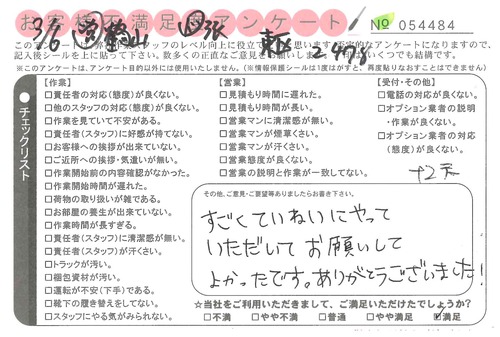 お客様不満足度アンケート
№ 054484
3/6
このアンケートは、
スタッフのレベル向上に役立て
思います。
なアンケートになりますので、
記入後シールを上に貼って下さい。数多くの正直なご意見をお
いくつでも結構です。
※このアンケートは、アンケート目的以外には使用いたしません。(※情報保護シールは1度はがすと、再度貼りなおすことはできません)
チェックリスト
【作業】
□責任者の対応(態度)が良くない。
□他のスタッフの対応(態度)が良くない。
□作業を見ていて不安がある。
□責任者(スタッフ)に好感が持てない。
□お客様への挨拶が出来ていない。
□ご近所への挨拶・気遣いが無い。
□作業開始前の内容確認がなかった。
□作業開始時間が遅れた。
□荷物の取り扱いが雑である。
□お部屋の養生が出来ていない。
□作業時間が長すぎる。
□責任者(スタッフ)に清潔感が無い。
□責任者(スタッフ)が汗くさい。
□トラックが汚い。
□梱包資材が汚い。
□運転が不安(下手)である。
□靴下の履き替えをしてない。
□スタッフにやる気がみられない。
【営業】
□見積もり時間に遅れた。
□見積もり時間が長い。
□営業マンに清潔感が無い。
□営業マンが煙草くさい。
□営業マンが汗くさい。
□営業態度が良くない。
□営業の説明と作業が一致してない。
【受付・その他】
□電話の対応が良くない。
□オプション業者の説明
・作業が良くない。
□オプション業者の対応
(態度)が良くない。
その他、ご意見・ご要望等ありましたらお書き下さい。
すごくていねいにやって
いただいて お願いして
よかったです。ありがとうございました!
☆当社をご利用いただきまして、ご満足いただけたでしょうか?
□不満 □やや不満 □普通 □やや満足 ☑満足